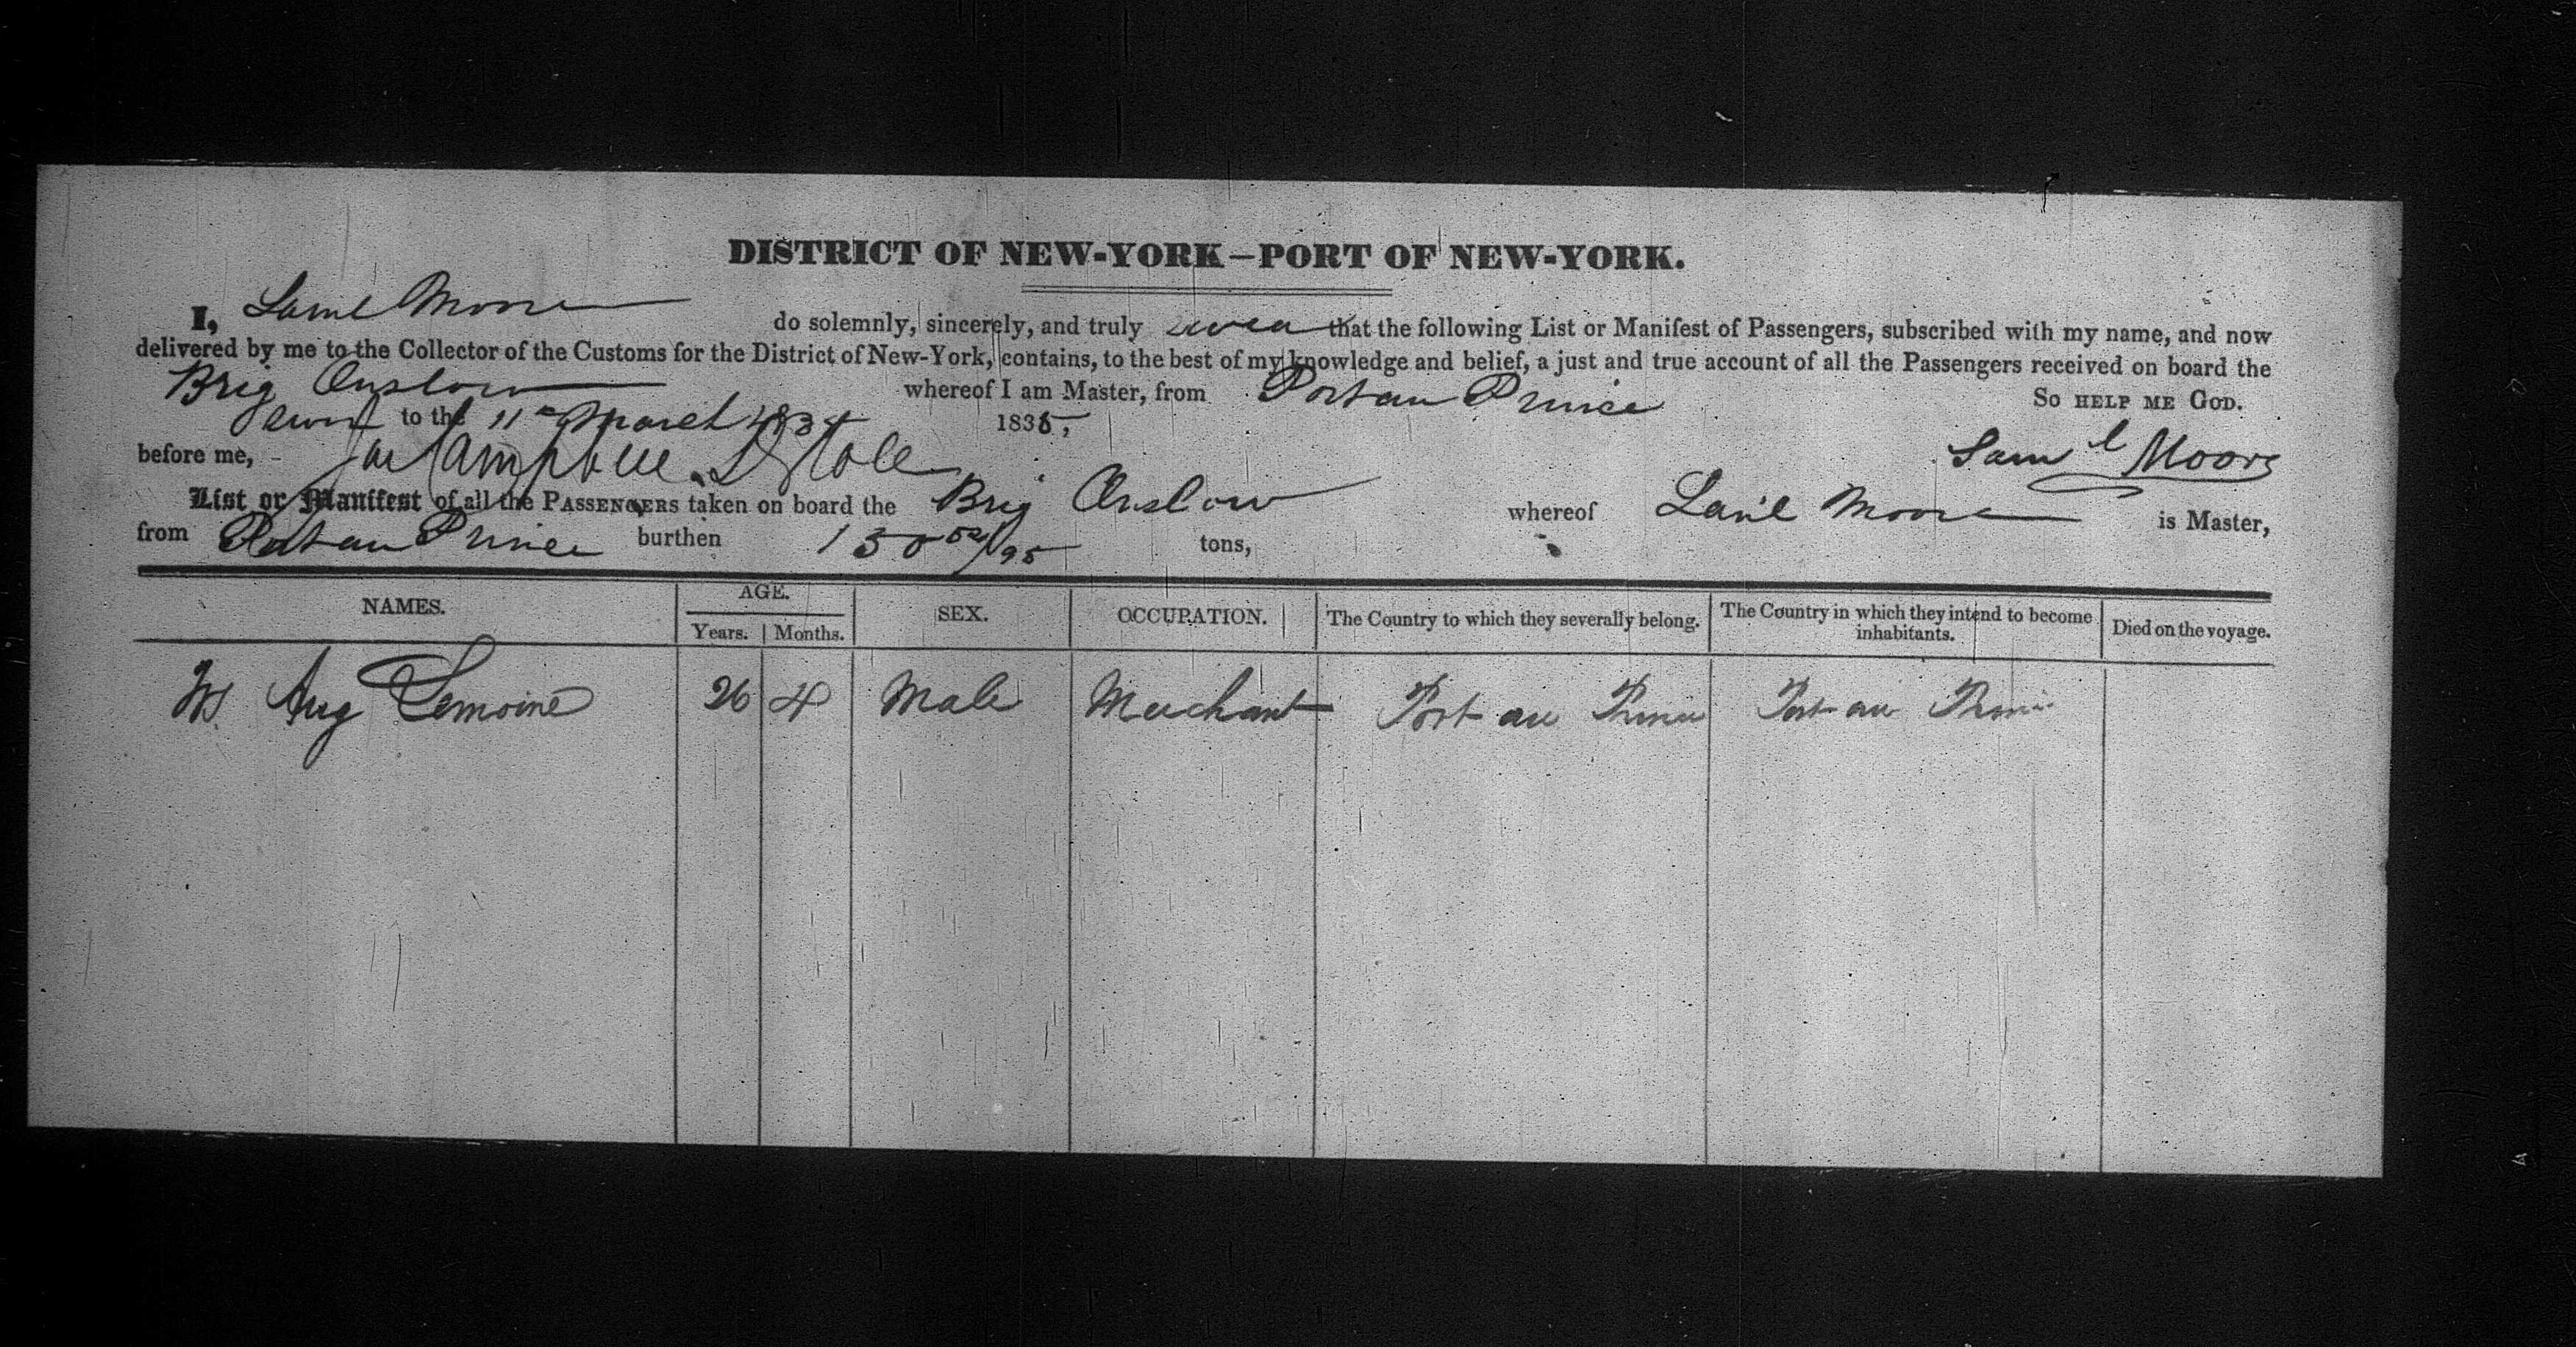 DISTRICT OF NEW-YORK—PORT OF NEW-YORK.
I, Saml Moore do solemnly, sincerely, and truly swear that the following List or Manifest of Passengers, subscribed with my name, and now
delivered by me to the Collector of the Customs for the District of New-York, contains, to the best of my knowledge and belief, a just and true account of all the Passengers received on board the
Brig Onslow whereof I am Master, from Port au Prince So HELP ME GOD.
Sworn to the 11th March 183 1835,
before me, Saml Moore
List or Manifest of all the PASSENGERS taken on board the Brig Onslow whereof Saml Moore is Master,
from Port au Prince burthen tons,
NAMES. AGE. SEX. OCCUPATION. The Country to which they severally belong. The Country in which they intend to become inhabitants. Died on the voyage.
Years. Months.
Aug Lemoine 26 4 Male Merchant Port au Prince Port au Prince